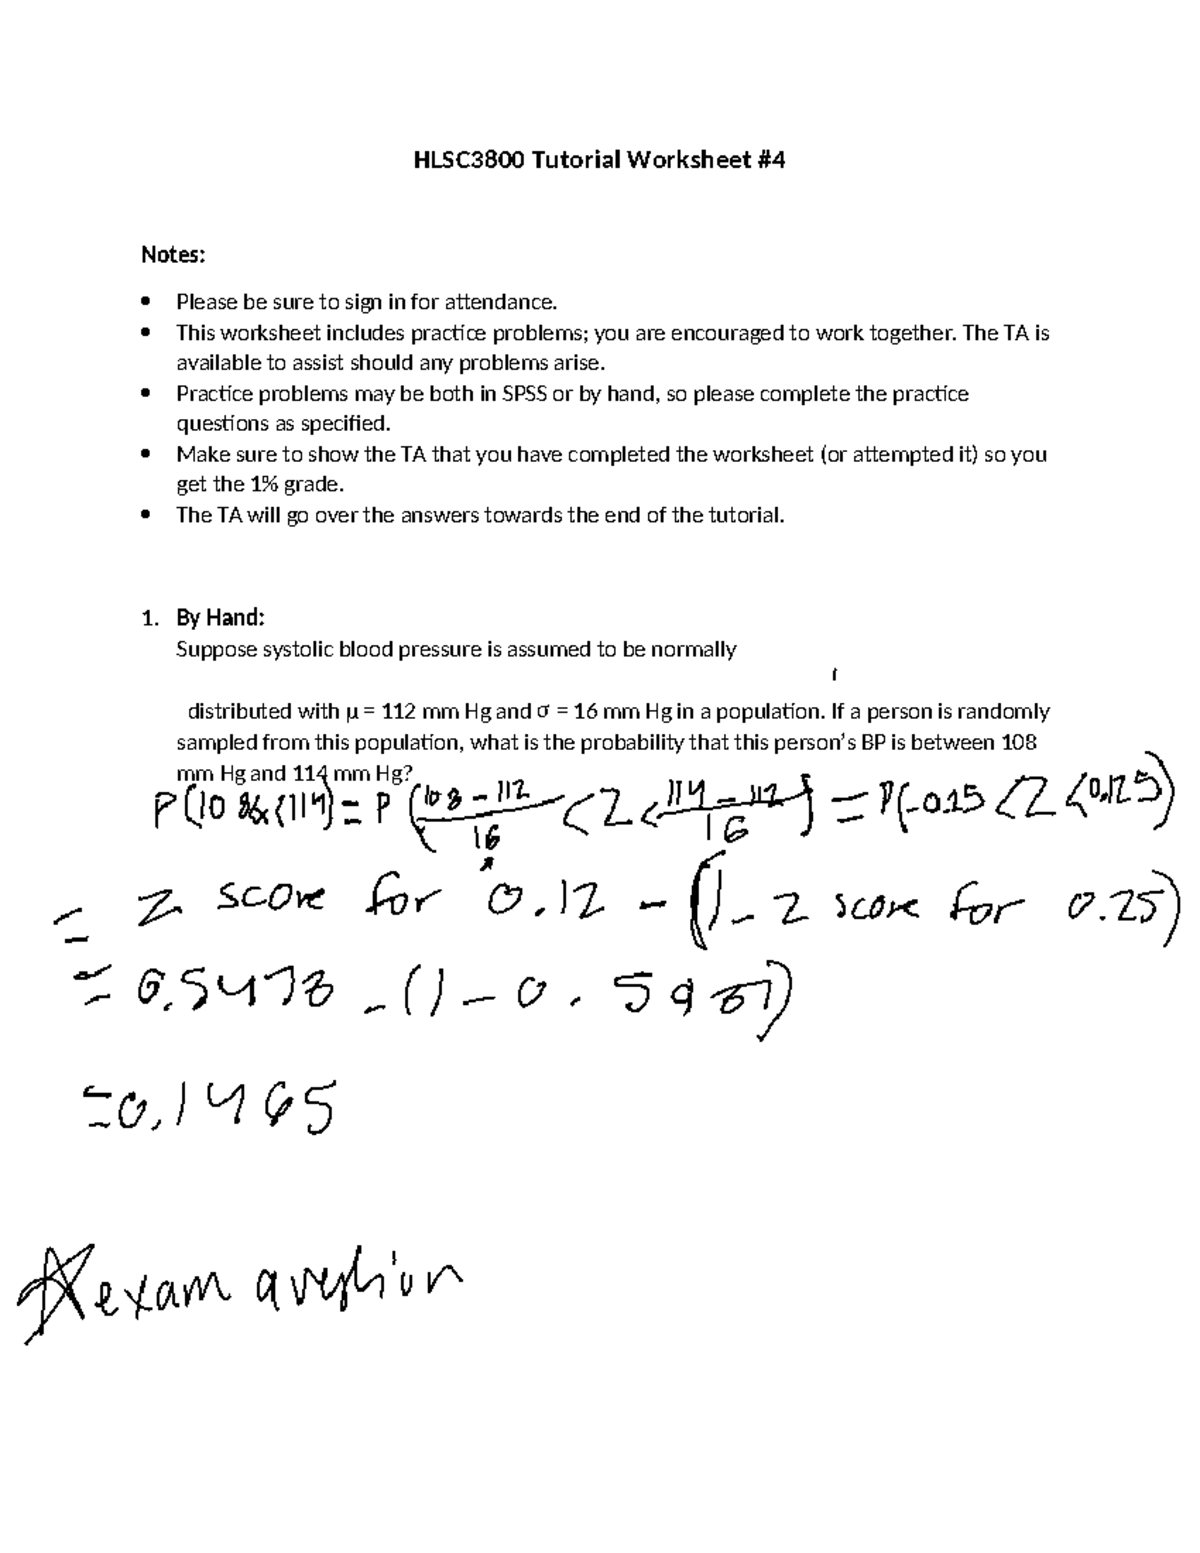 HLSC3800 Tutorial Worksheet #4
Notes:
• Please be sure to sign in for attendance.
• This worksheet includes practice problems; you are encouraged to work together. The TA is
available to assist should any problems arise.
• Practice problems may be both in SPSS or by hand, so please complete the practice
questions as specified.
• Make sure to show the TA that you have completed the worksheet (or attempted it) so you
get the 1% grade.
• The TA will go over the answers towards the end of the tutorial.
1. By Hand:
Suppose systolic blood pressure is assumed to be normally
distributed with μ = 112 mm Hg and σ = 16 mm Hg in a population. If a person is randomly
sampled from this population, what is the probability that this person's BP is between 108
mm Hg and 114 mm Hg?
P(108<x<114) = P(108-112/16 < Z < 114-112/16) = P(-0.25 < Z < 0.125)
= Z score for 0.12 - (1 - Z score for 0.25)
= 0.5478 - (1 - 0.5987)
= 0.1465
exam question